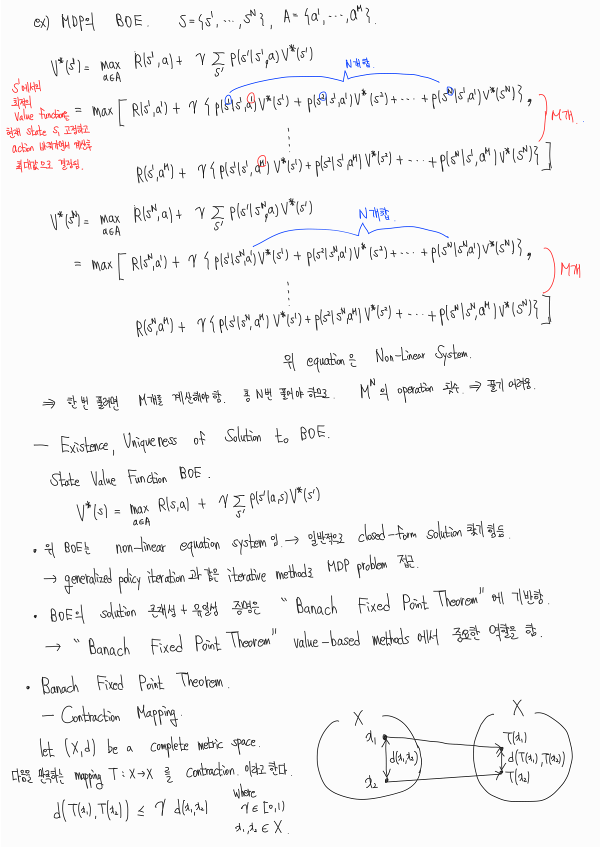 ex) MDP의 BOE. S = {s¹, ⋯, s^N}, A = {a¹, ⋯, a^M}.
V*(s¹) = max_{a∈A} R(s¹,a) + γ Σ_{s'} p(s'|s¹,a) V*(s')
N개항
= max [ R(s¹,a¹) + γ { p(s¹|s¹,a¹) V*(s¹) + p(s²|s¹,a¹) V*(s²) + ⋯ + p(s^N|s¹,a¹) V*(s^N) },
⋮
M개.
R(s¹,a^M) + γ { p(s¹|s¹,a^M) V*(s¹) + p(s²|s¹,a^M) V*(s²) + ⋯ + p(s^N|s¹,a^M) V*(s^N) } ]
s¹에서의
최적의
Value function은
현재 state s¹ 고정하고
action 바꿔가면서 계산후
최대값으로 결정됨.
V*(s^N) = max_{a∈A} R(s^N,a) + γ Σ_{s'} p(s'|s^N,a) V*(s')
N개항.
= max [ R(s^N,a¹) + γ { p(s¹|s^N,a¹) V*(s¹) + p(s²|s^N,a¹) V*(s²) + ⋯ + p(s^N|s^N,a¹) V*(s^N) },
⋮
M개
R(s^N,a^M) + γ { p(s¹|s^N,a^M) V*(s¹) + p(s²|s^N,a^M) V*(s²) + ⋯ + p(s^N|s^N,a^M) V*(s^N) } ]
위 equation은 Non-Linear System.
⇒ 한 번 풀려면 M개를 계산해야함. 총 N번 풀어야 하므로. M^N의 operation 횟수. ⇒ 풀기 어려움.
— Existence, Uniqueness of Solution to BOE.
State Value Function BOE.
V*(s) = max_{a∈A} R(s,a) + γ Σ_{s'} p(s'|a,s) V*(s')
• 위 BOE는 non-linear equation system 임. → 일반적으로 closed-form solution 찾기 힘듦.
→ generalized policy iteration 과 같은 iterative method로 MDP problem 접근.
• BOE의 solution 존재성 + 유일성 증명은 "Banach Fixed Point Theorem" 에 기반함.
→ "Banach Fixed Point Theorem" value-based methods 에서 중요한 역할을 함.
• Banach Fixed Point Theorem.
— Contraction Mapping.
let (X,d) be a complete metric space.
다음을 만족하는 mapping T : X→X 를 contraction. 이라고 한다.
d(T(x₁), T(x₂)) ≤ γ d(x₁,x₂) where
γ ∈ [0,1)
x₁,x₂ ∈ X.
X X
x₁ T(x₁)
d(x₁,x₂) d(T(x₁),T(x₂))
x₂ T(x₂)